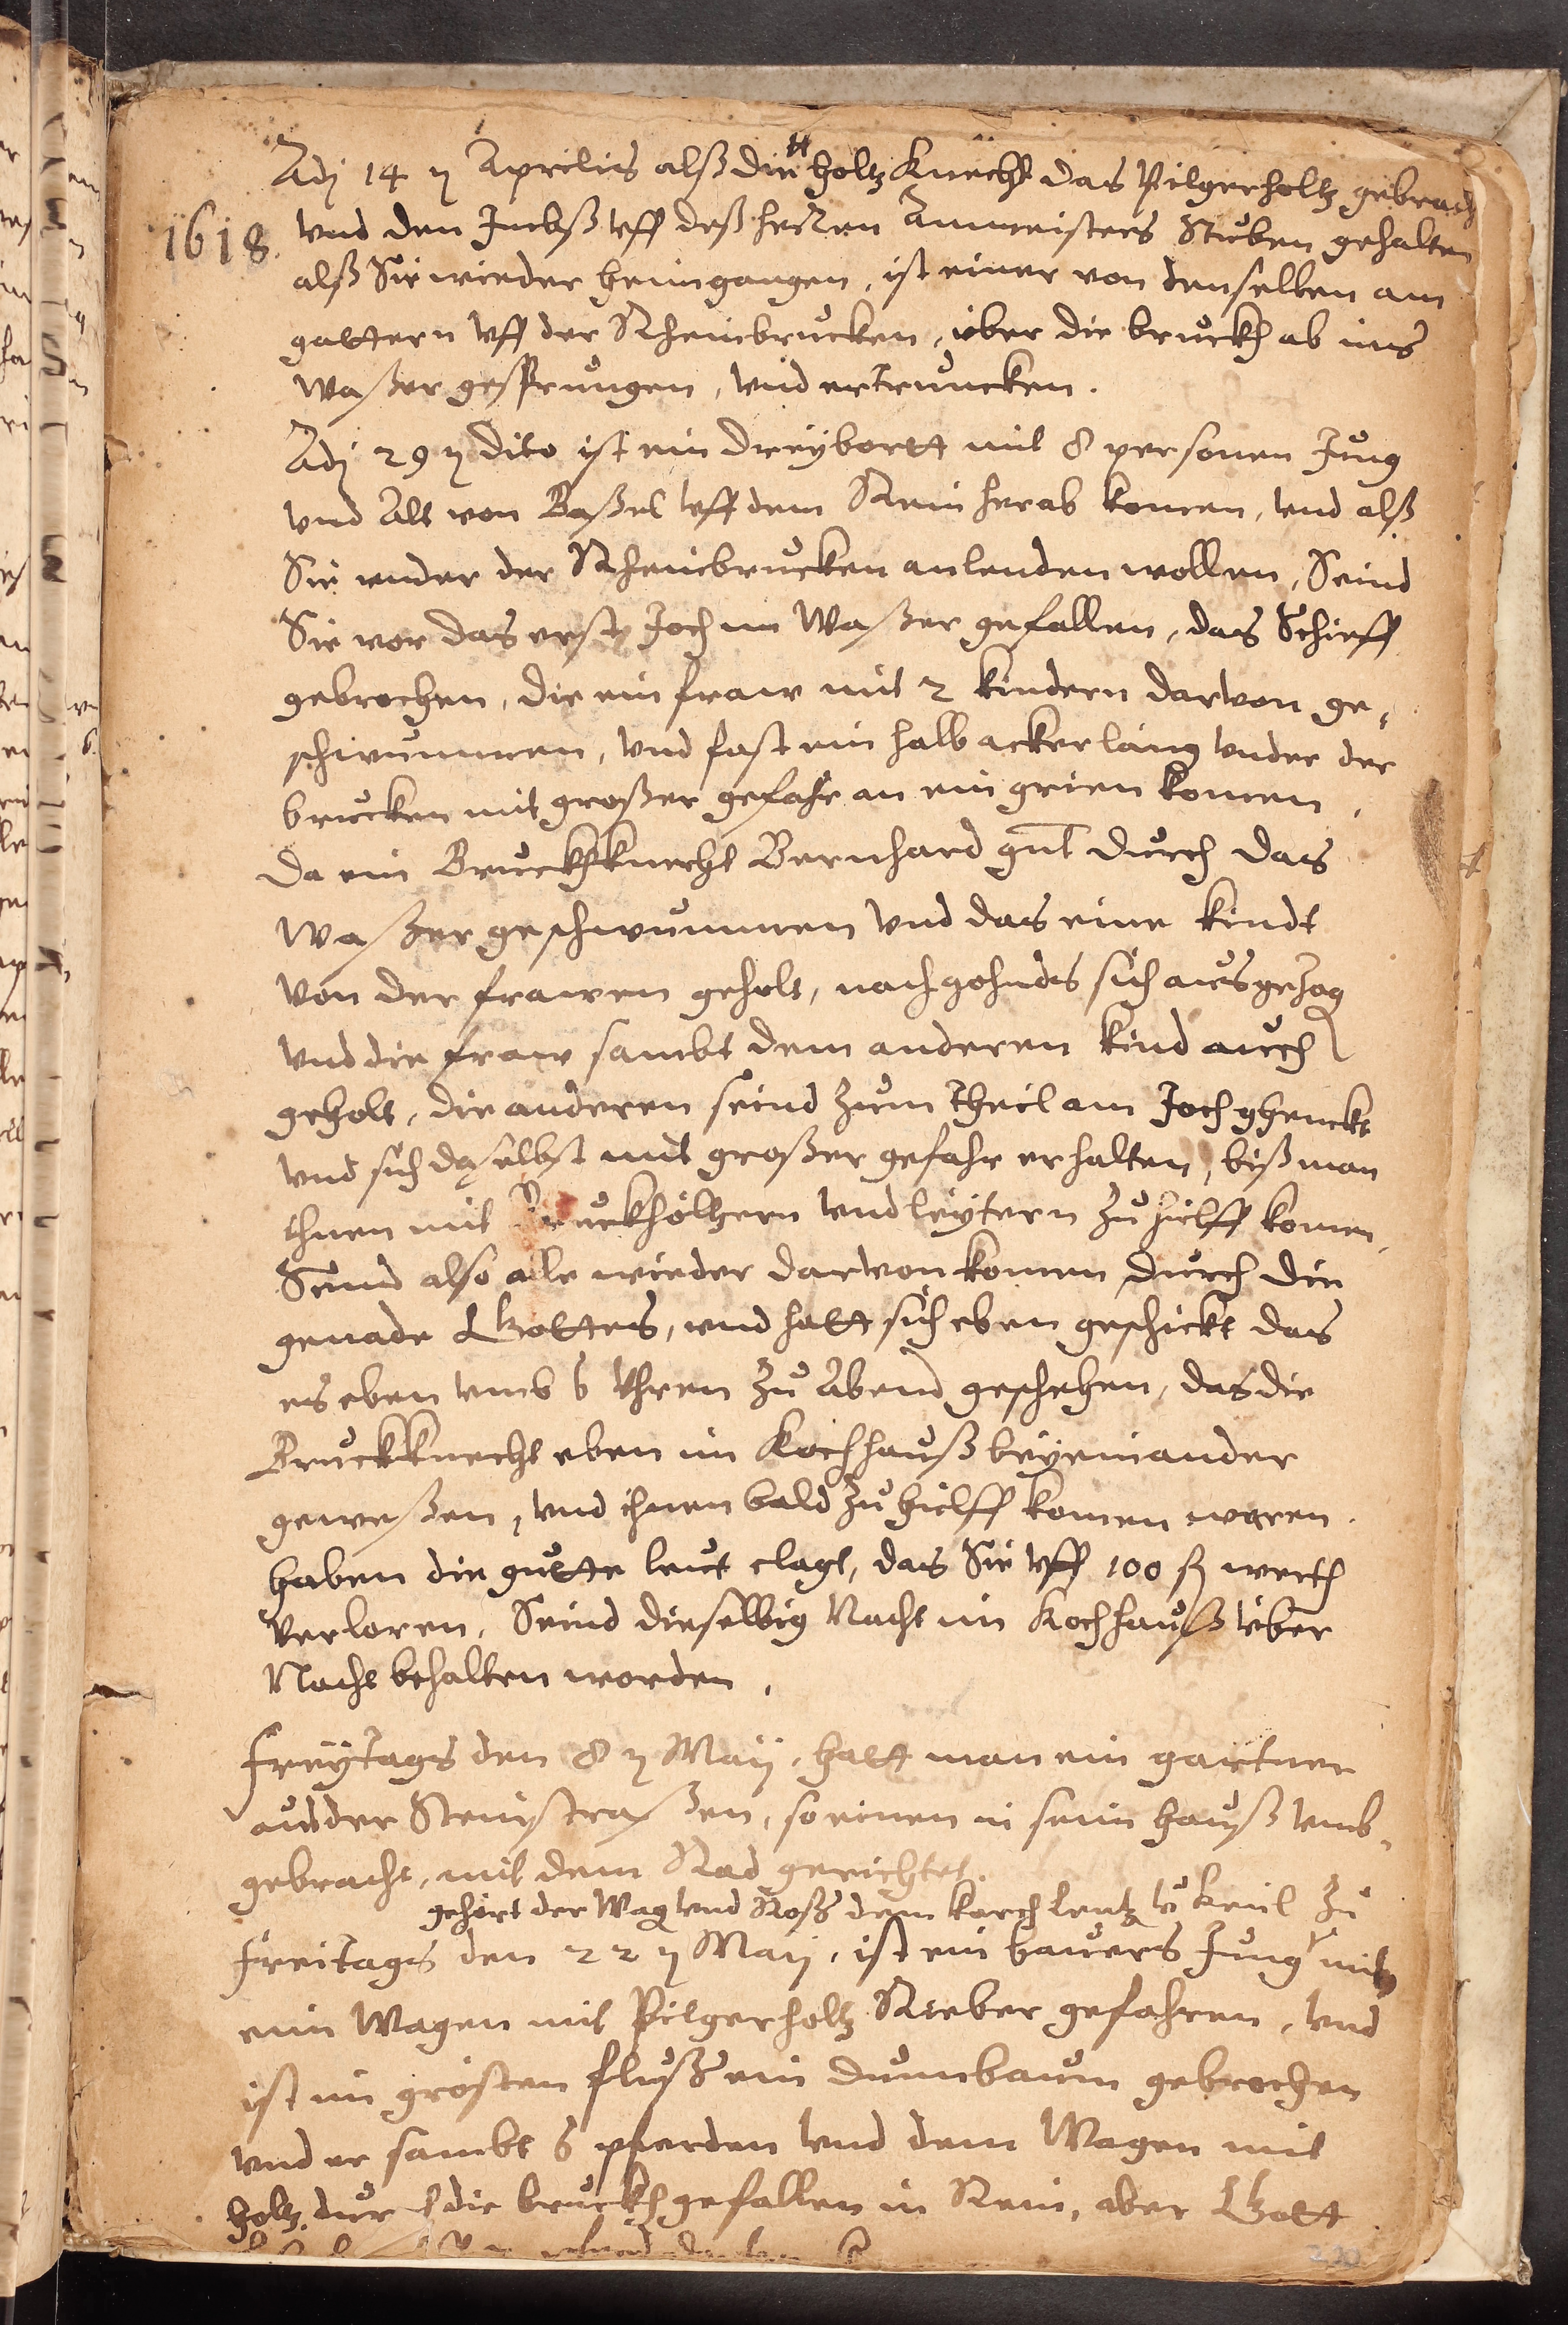 Adj 14 ŋ Aprilis alß die 4 holtz Knecht das Pilgerholtz gebrach
1618. vnd den Imbß vff deß herren Ammeisters Stuben gehalten
alß Sie wieder heimgangen, ist einer von denselben am
gattern vff der Rheinbrucken, über die bruckh ab ins
Waßer gesprungen, vnd ertruncken.
Adj 29 ŋ dito ist ein dreybortt mit 8 personen Jung
vnd Alt von Baßel vff dem Rein herab komen, vnd alß
Sie vnder der Rheinbrucken anlenden wollen, Seind
Sie vor das erst Joch im Waßer gefallen, das Schieff
gebrochen, die ein fraw mit 2 kindern darvon ge-
schwummen, vnd fast ein halb ackerlang vnder der
brucken mit großer gefahr an ein grien komen,
da ein Bruckhknecht Bernhard gnt durch das
Waßer geschwummen vnd das eine kindt
von der frawen geholt, nachgohnds sich ausgezog
vnd die fraw sambt dem anderen kind auch
geholt, die anderen seind zum theil am Joch ghenckt
vnd sich daselbst mit großer gefahr erhalten, biß man
ihnen mit Bruckhöltzern vnd leytern zu hilff komen,
Seind also alle wieder darvon komen durch die
genade Gottes, vnd hatt sich eben geschickt das
es eben vmb 6 Vhren zu Abend geschehen, das die
Bruckknecht eben im Kochhauß beyeinander
geweßen, vnd ihnen bald zu hielff komen waren.
haben die gutte leut clagt, das Sie vff 100 fl werth
verloren, Seind dieselbig Nacht im Kochhauß über
Nacht behalten worden,
freytags den 8 ŋ Maij, hatt man ein gartner
aus der Steinstraßen, so einen in seim hauß vmb-
gebracht, mit dem Rad gerichtet.
gehört der Wag vnd Roß dem karch Lentz v Keül zu
freitags den 22 ŋ Maij, ist ein bauers Jung mit
eim Wagen mit Pilgerholtz Rieber gefahren, vnd
ist im grösten fluß ein dumbaum gebrochen
vnd er sambt 6 pferden vnd dem Wagen mit
holtz durch die bruckh gefallen in Rein, aber Gott